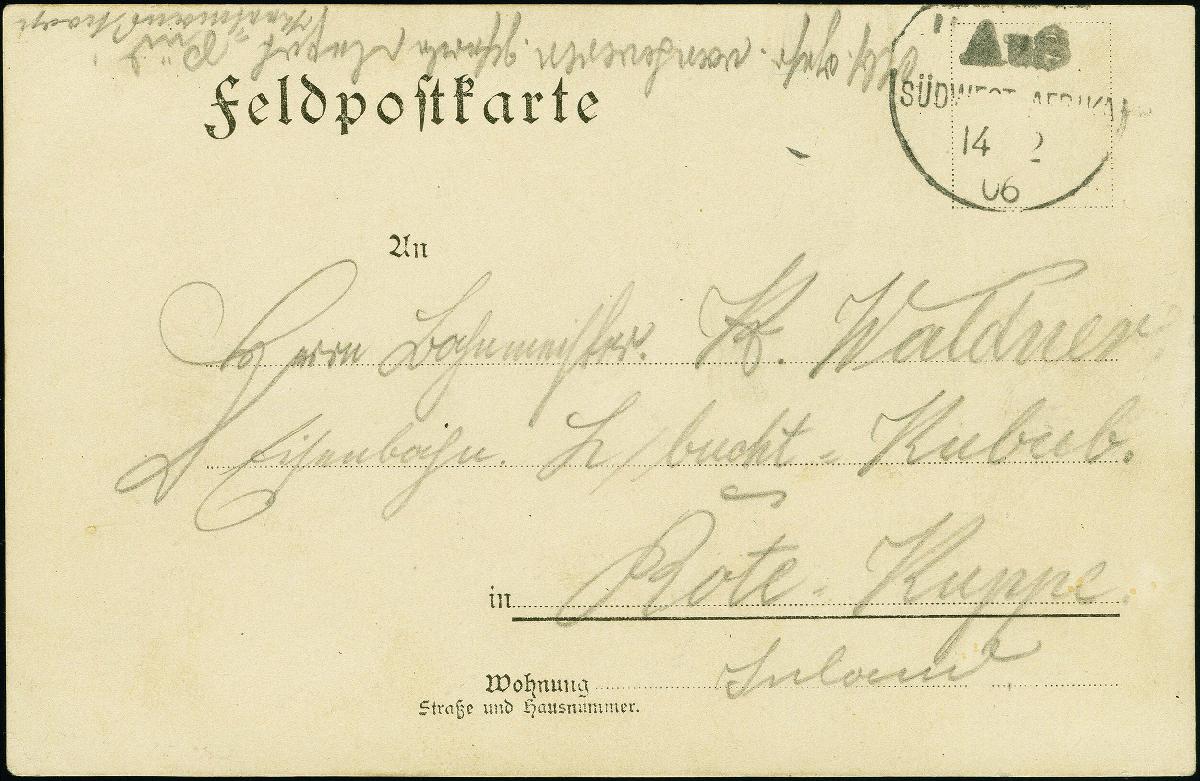 Auß
SÜDWEST-AFRIKA
14 2
06
Feldpostkarte
An
Herrn Bahnmeister. K. Waldner
Eisenbahn. L/bucht-Kubub.
in Rote-Kuppe.
Wohnung Inland
Straße und Hausnummer.